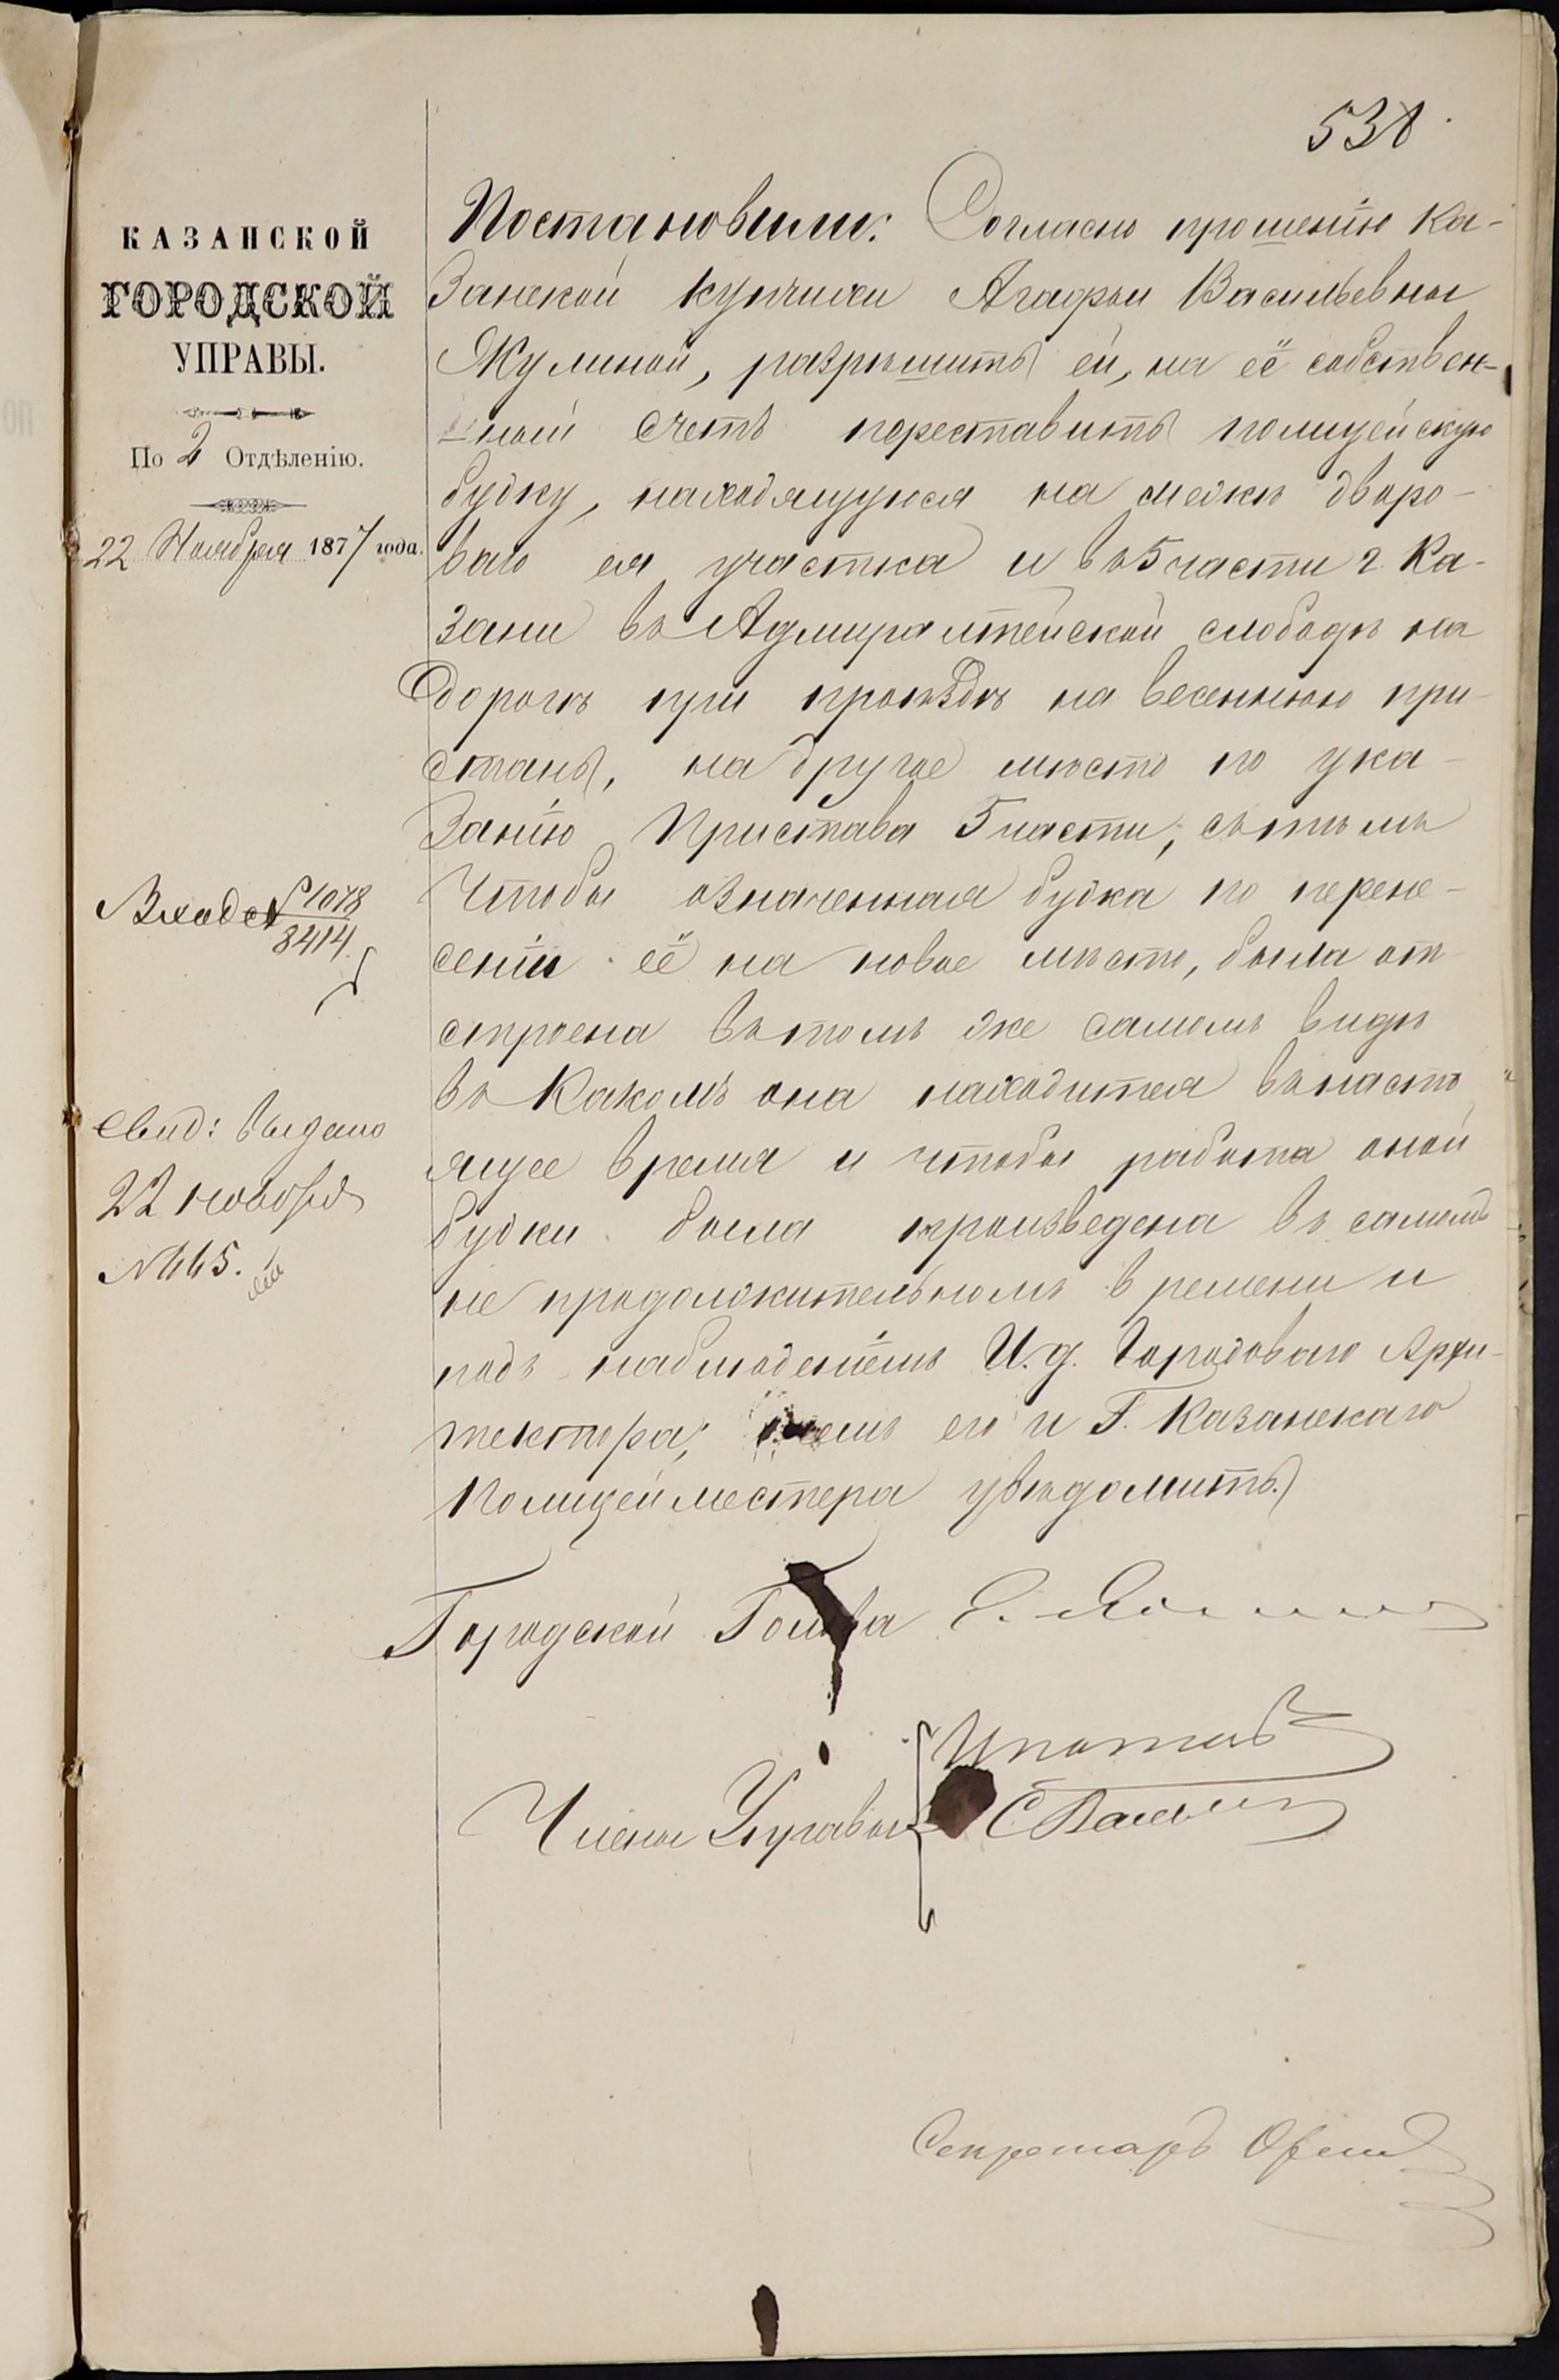 538
КАЗАНСКОЙ
ГОРОДСКОЙ
УПРАВЫ.
По 2 Отдѣленію.
22 Ноября 1877 года.
Входъ № 1078
8414
Свид: выдано
22 ноября
№ 665.
Постановили: Согласно прошенію Ка-
занской купчихи Агафьи Васильевны
Жулиной, разрѣшить ей, на её собствен-
ный счетъ переставить полицейскую
будку, находящуюся на межѣ дворо-
ваго ея участка и въ 5 части г. Ка-
зани въ Адмиралтейской слободѣ на
дорогѣ при проѣздѣ на весеннюю при-
стань, на другое мѣсто по ука-
занію Пристава 5 части, съ тѣмъ
чтобы означенная будка по перене-
сеніи её на новое мѣсто, была от-
строена въ томъ же самомъ видѣ
въ какомъ она находится въ насто-
ящее время и чтобы работа оной
будки была произведена въ самомъ
не продолжительномъ времени и
подъ наблюденіемъ И. д. Городоваго Архи-
тектора; о чемъ его и Г. Казанскаго
Полицейместера увѣдомить.
Городской Голова
Члены Управы
Ипатовъ
Секретарь